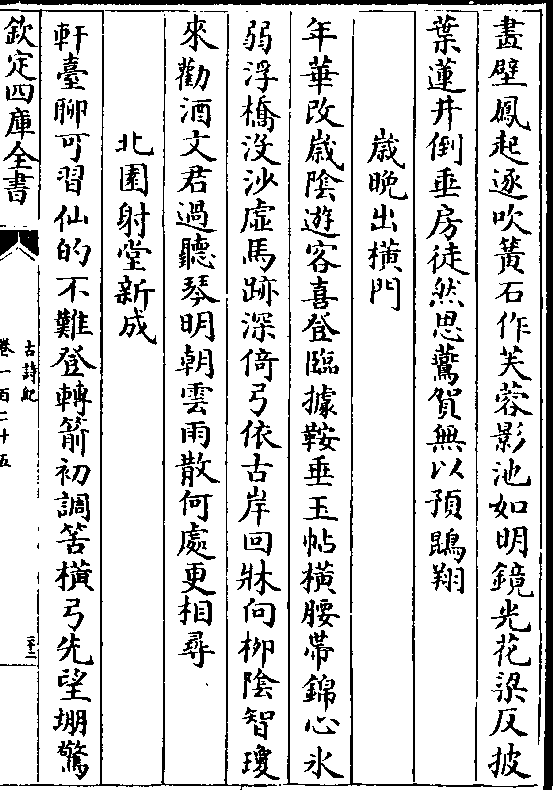 畫壁鳳起逐吹簧石作芙蓉影池如明鏡光花梁反披
葉蓮井倒垂房徒然思鷰賀無以預鵾翔
歲晚出橫門
年華改歲陰遊客喜登臨據鞍垂玉帖橫腰帶錦心氷
弱浮橋没沙虛馬跡深倚弓依古岸回牀向柳陰智瓊
來勸酒文君過聽琴明朝雲雨散何處更相尋
北園射堂新成
軒臺聊可習仙的不難登轉箭初調筈橫弓先望堋驚
欽定四庫全書
古詩紀
卷一百二十五